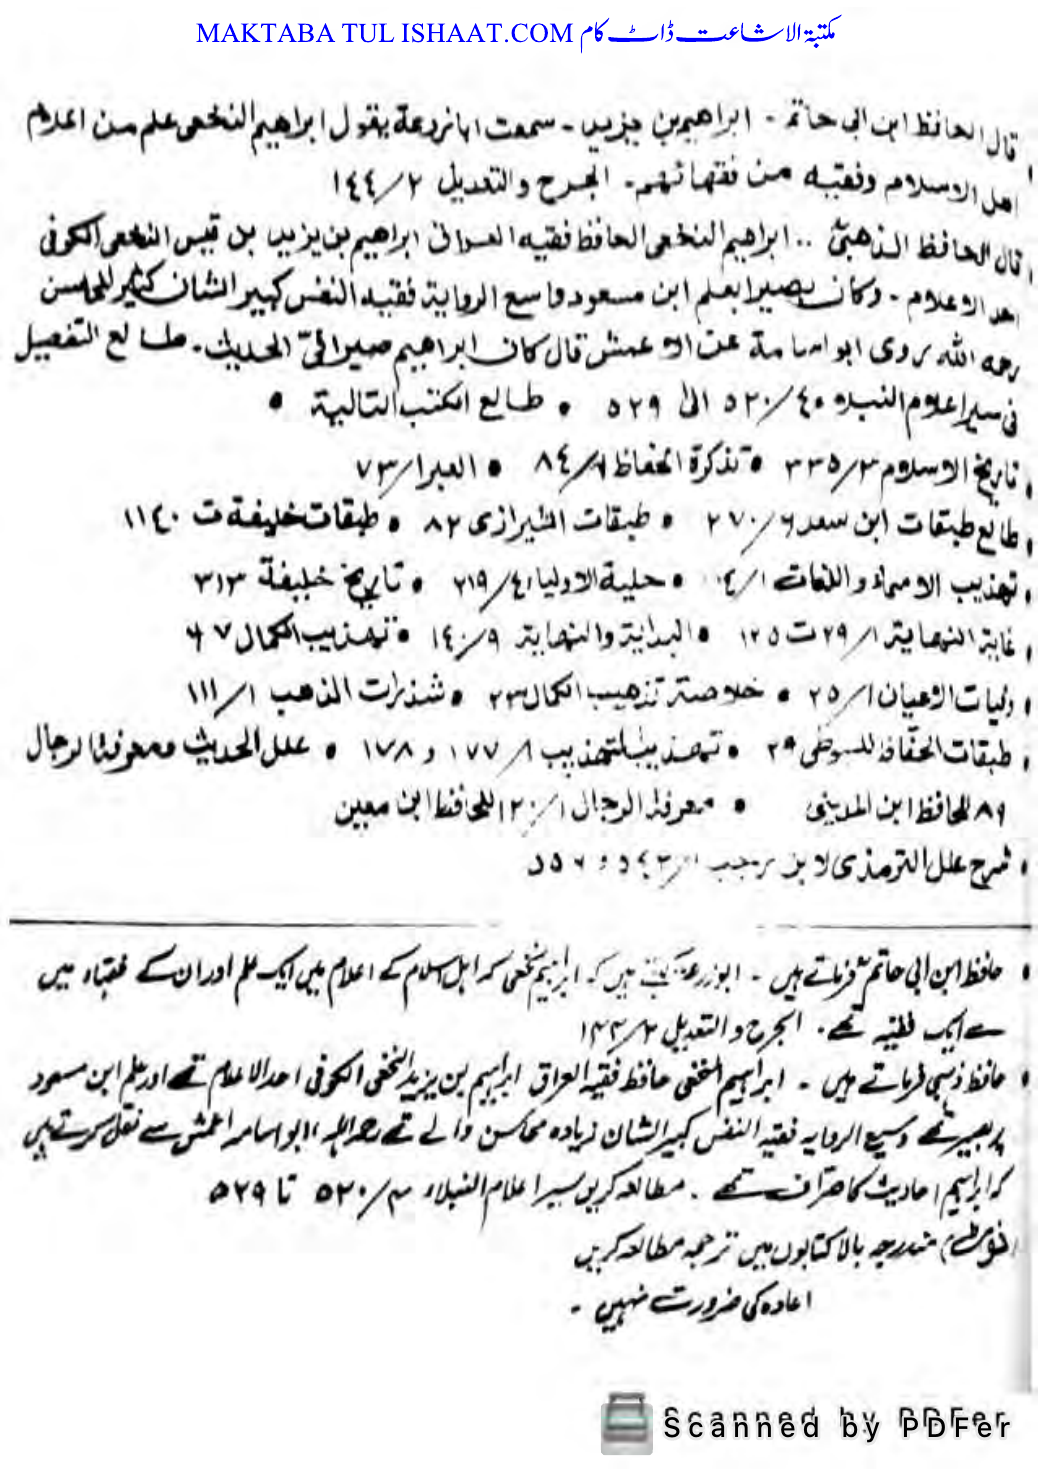 MAKTABA TUL ISHAAT.COM مکتبۃ الاشاعت ڈاٹ کام
قال الحافظ ابن ابی حاتم - ابراھیم بن یزید - سمعت ابا زرعة یقول ابراھیم النخعی علم من اعلام
اھل الاسلام وفقیه من فقھائھم - الجرح والتعدیل ۲/۱٤٤
قال الحافظ الذھبیؒ .. ابراھیم النخعی الحافظ فقیه العراق ابراھیم بن یزید بن قیس النخعی الکوفی
احد الاعلام - وکان بصیرا بعلم ابن مسعود واسع الروایة فقیه النفس کبیر الشان کثیر المحاسن
رحمه الله روی ابو اسامة عن الاعمش قال کان ابراھیم صیرافیّ الحدیث - طالع التفصیل
فی سیر اعلام النبلاء ٤/۵۲۰ الی ۵۲۹ • طالع الکتب التالیة •
تاریخ الاسلام ۳/۳۳۵ • تذکرة الحفاظ ۱/۸٤ • العبر ۱/۷۳
طالع طبقات ابن سعد ۶/۲۷۰ • طبقات الشیرازی ۸۲ • طبقات خلیفة ت ۱۱٤۰
تھذیب الاسماء واللغات ۱/ • حلیة الاولیاء ٤/۲۱۹ • تاریخ خلیفة ۳۱۳
غایة النھایة ۱/۲۹ ت ۱۲۵ • البدایة والنھایة ۹/۱٤۰ • تھذیب الکمال ۶۷
وفیات الاعیان ۱/۲۵ • خلاصة تذھیب الکمال ۲۳ • شذرات الذھب ۱/۱۱۱
طبقات الحفّاظ للسیوطی ۲۹ • تھذیب التھذیب ۱/۱۷۷ و ۱۷۸ • علل الحدیث ومعرفة الرجال
۸۹ للحافظ ابن المدینی • معرفة الرجال ۱/۱۲۰ للحافظ ابن معین
شرح علل الترمذی لابن رجب
• حافظ ابن ابی حاتمؒ فرماتے ہیں - ابوزرعہ کہتے ہیں کہ ابراہیم نخعی کہ اہل اسلام کے اعلام میں ایک علم اور ان کے فقہاء میں
سے ایک فقیہ تھے - الجرح والتعدیل ۲/۱۴۴
• حافظ ذہبی فرماتے ہیں - ابراہیم النخعی حافظ فقیہ العراق ابراہیم بن یزید النخعی الکوفی احد الاعلام تھے اور علم ابن مسعود
پر بصیر تھے وسیع الروایہ فقیہ النفس کبیر الشان زیادہ محاسن والے تھے رحمہ اللہ، ابو اسامہ اعمش سے نقل کرتے ہیں
کہ ابراہیم احادیث کا صراف تھے - مطالعہ کریں سیر اعلام النبلاء ۴/۵۲۰ تا ۵۲۹
مندرجہ بالا کتابوں میں ترجمہ مطالعہ کریں
اعادہ کی ضرورت نہیں -
Scanned by PDFer